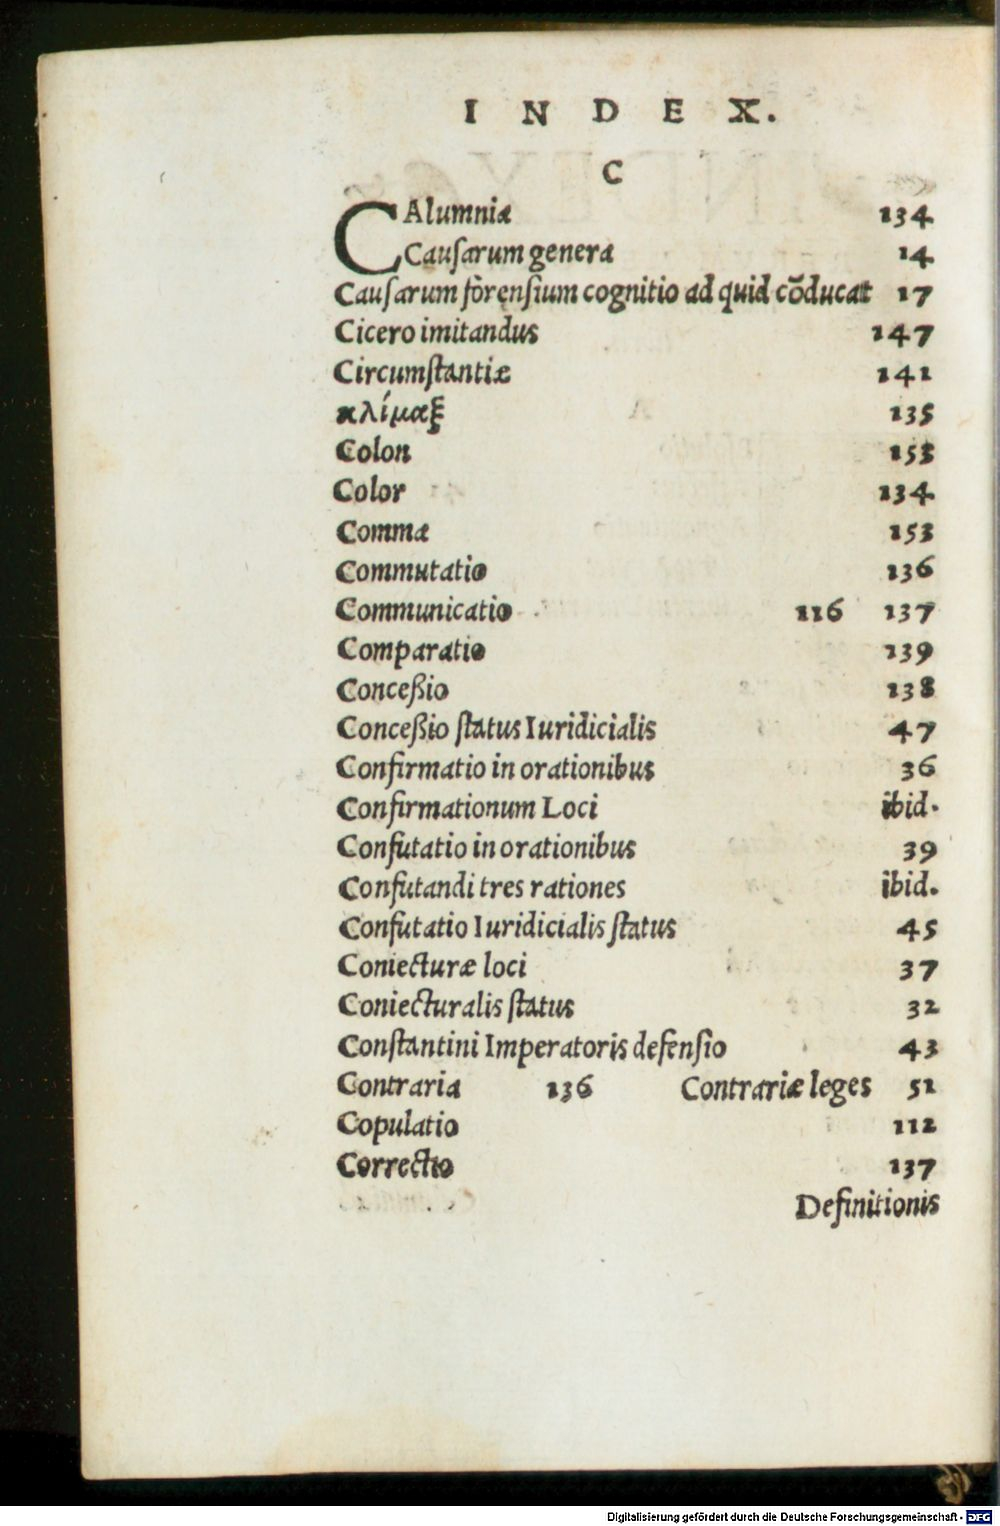 I N D E X.
C
CAlumnia 134
Cauſarum genera 14
Cauſarum forenſium cognitio ad quid cōducat 17
Cicero imitandus 147
Circumſtantiæ 141
κλίμαξ 135
Colon 153
Color 134
Comma 153
Commutatio 136
Communicatio 116 137
Comparatio 139
Conceßio 138
Conceßio ſtatus Iuridicialis 47
Confirmatio in orationibus 36
Confirmationum Loci ibid.
Confutatio in orationibus 39
Confutandi tres rationes ibid.
Confutatio Iuridicialis ſtatus 45
Coniecturæ loci 37
Coniecturalis ſtatus 32
Conſtantini Imperatoris defenſio 43
Contraria 136 Contrariæ leges 51
Copulatio 112
Correctio 137
Definitionis
Digitalisierung gefördert durch die Deutsche Forschungsgemeinschaft - DFG